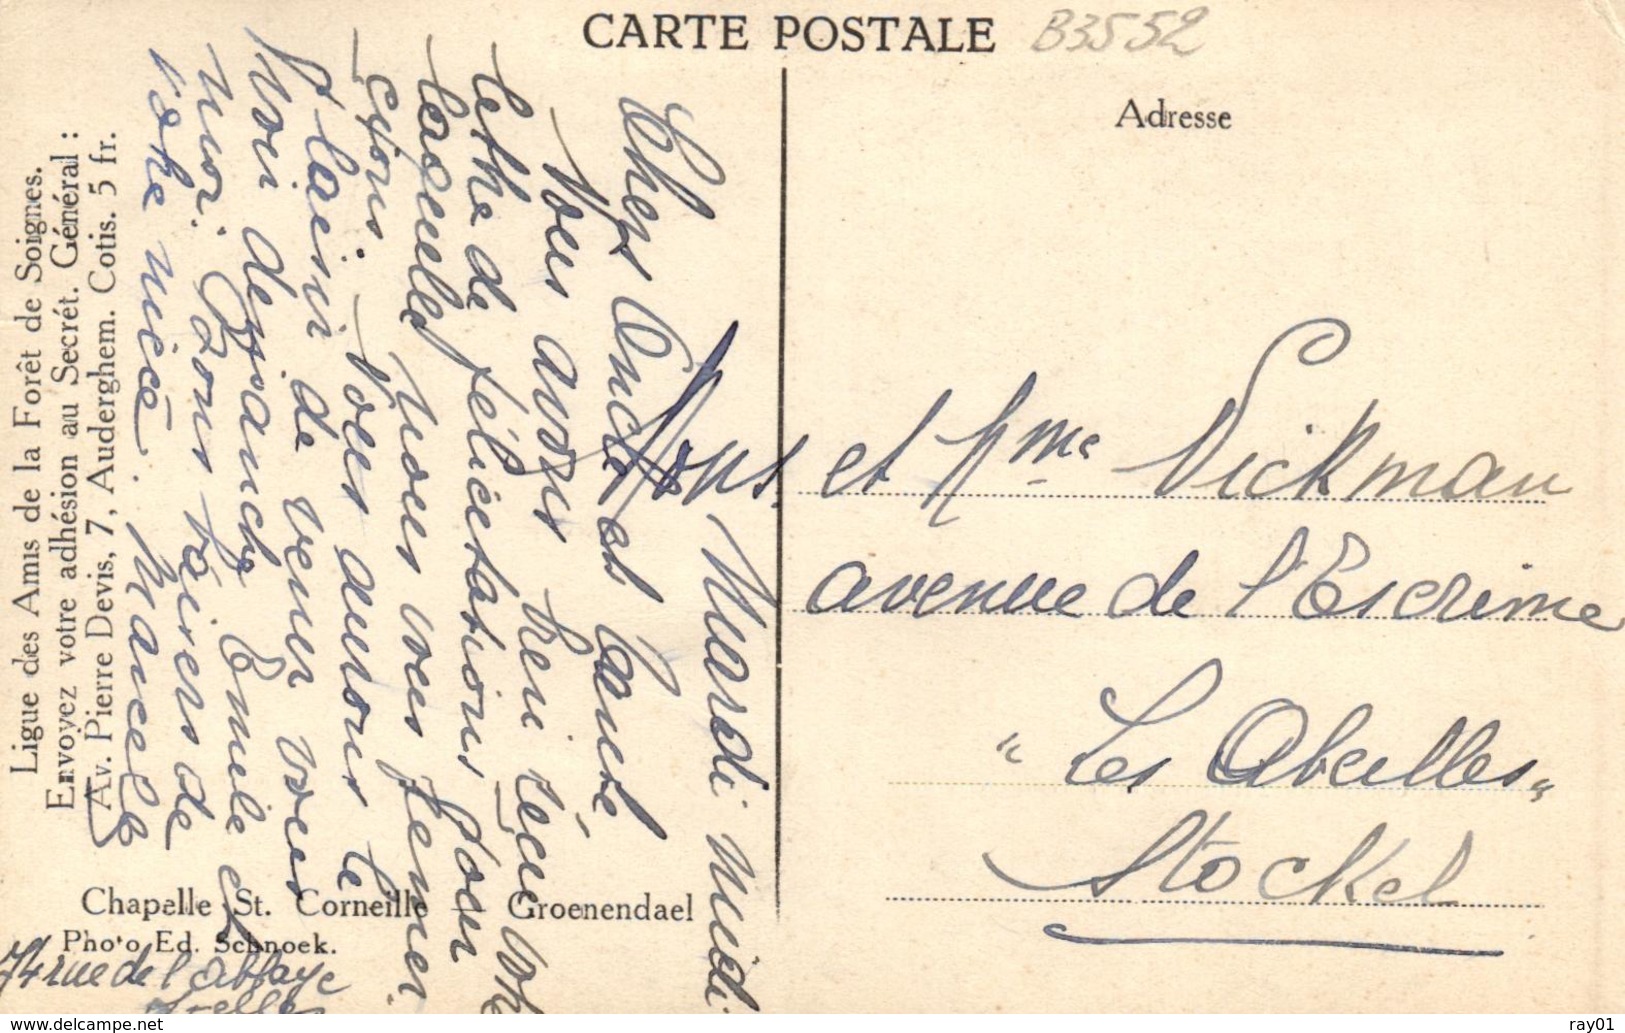 CARTE POSTALE
B3552
Adresse
Mons. et Mme Vickman
avenue de l'Escrime
"Les Abeilles"
Stockel
Mardi midi.
Chers Oncle et Tante
Nous avons bien reçu votre
lettre de félicitations pour
laquelle nous vous remer
cions. Nous aurons le
plaisir de venir vous
voir dimanche Emile et
moi. Bons baisers de
votre nièce. Marcelle
Ligue des Amis de la Forêt de Soignes.
Envoyez votre adhésion au Secrét. Général :
Av. Pierre Devis, 7, Auderghem. Cotis. 5 fr.
Chapelle St. Corneille — Groenendael
Photo Ed. Schnoek.
74 rue de l'abbaye
Ixelles
https://www.delcampe.net
ray01